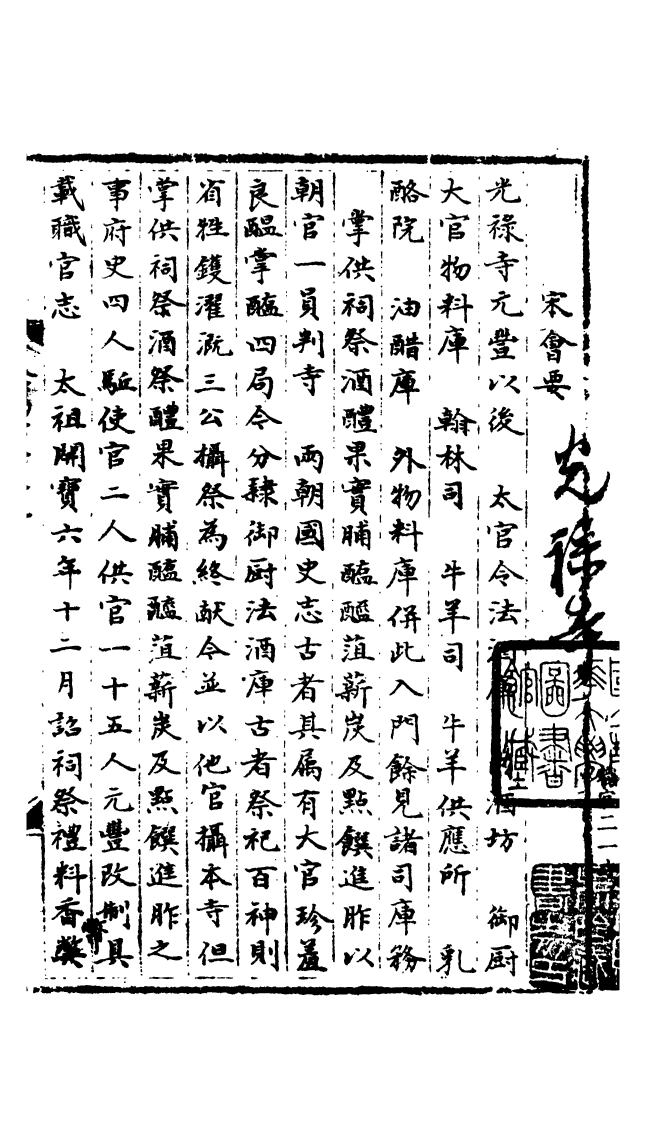 宋會要
光祿寺
光祿寺元豐以後 太官令法酒庫 酒坊 御厨
大官物料庫 翰林司 牛羊司 牛羊供應所 乳
酪院 油醋庫 外物料庫併此入門餘見諸司庫務
掌供祠祭酒醴果實脯醢醓菹薪炭及點饌進胙以
朝官一員判寺 兩朝國史志古者具属有大官珍羞
良醖掌醢四局令分隸御厨法酒庫古者祭祀百神則
省牲鑊濯溉三公攝祭為終献令並以他官攝本寺但
掌供祠祭酒祭醴果實脯醢醓菹薪炭及點饌進胙之
事府史四人駈使官二人供官一十五人元豐改制具
載職官志 太祖開寶六年十二月詔祠祭禮料香幣
幣
職官二一
圖書